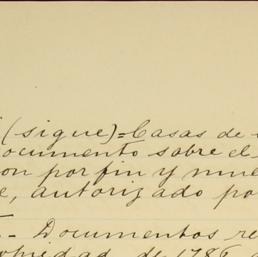 (sigue) = Casas de
documento sobre el
on por fin y mue
e, autorizado po
- Documentos re
opiedad de 1786